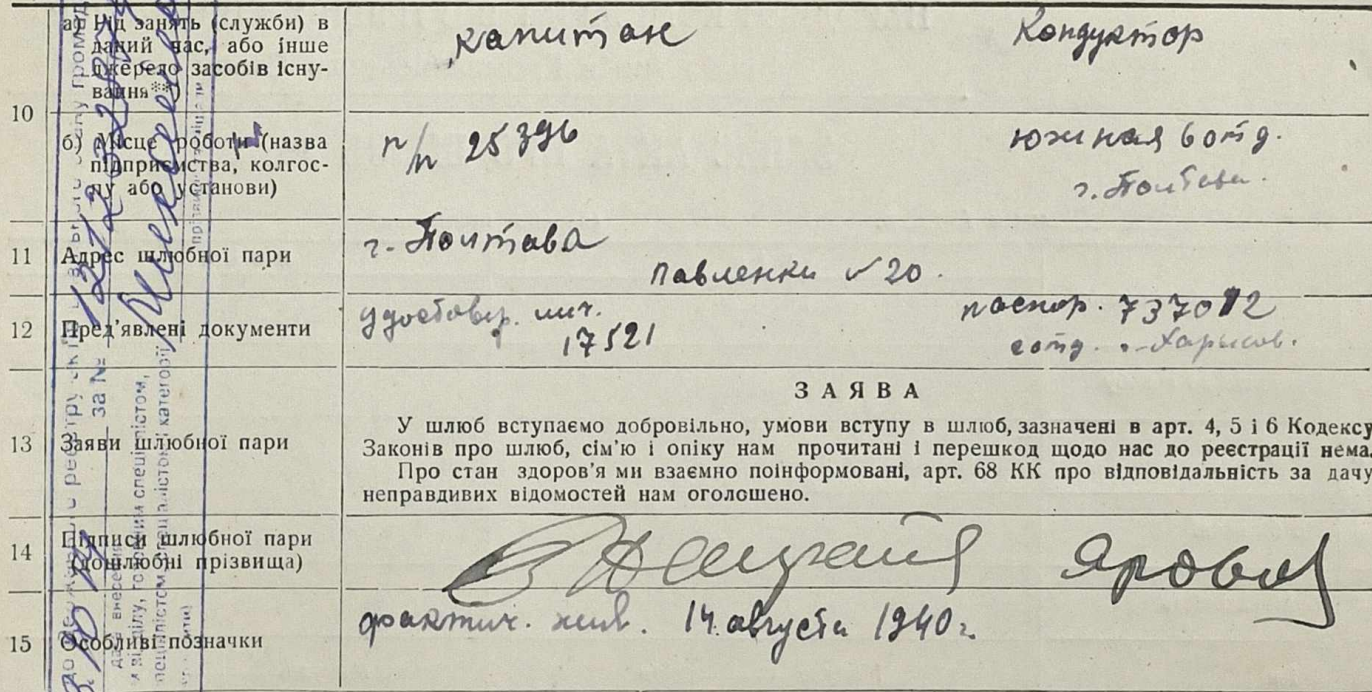 10
а) Рід занять (служби) в
даний час, або інше
джерело засобів існу-
вання**)
капитан
Кондуктор
б) Місце роботи (назва
підприємства, колгос-
пу або установи)
п/п 25396
южная 6 отд.
г. Полтава
11
Адрес шлюбної пари
г. Полтава
Павленки № 20
12
Пред'явлені документи
удостовер. лич.
17521
паспор. 737012
13
Заяви шлюбної пари
ЗАЯВА
У шлюб вступаємо добровільно, умови вступу в шлюб, зазначені в арт. 4, 5 і 6 Кодексу
Законів про шлюб, сім'ю і опіку нам прочитані і перешкод щодо нас до реєстрації нема.
Про стан здоров'я ми взаємно поінформовані, арт. 68 КК про відповідальність за дачу
неправдивих відомостей нам оголошено.
14
Підписи шлюбної пари
(дошлюбні прізвища)
15
Особливі позначки
фактич. жив. 14 августа 1940 г.
за №